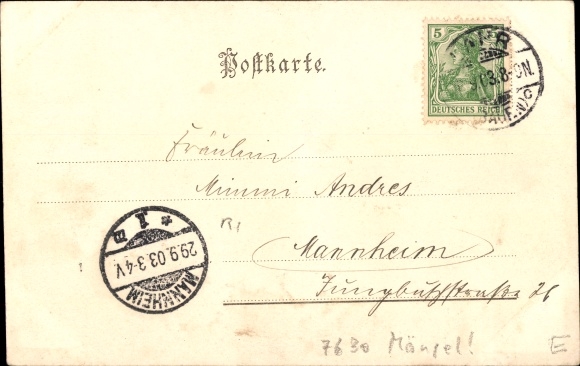 Postkarte.
5
DEUTSCHES REICH
LAHR
03.8-9N.
Fräulein
Mimmi Andres
R1
Mannheim
Jungbuschstraße 26
* 1 B
29.9.03.3-4V.
MANNHEIM
7630 Mängel!
E